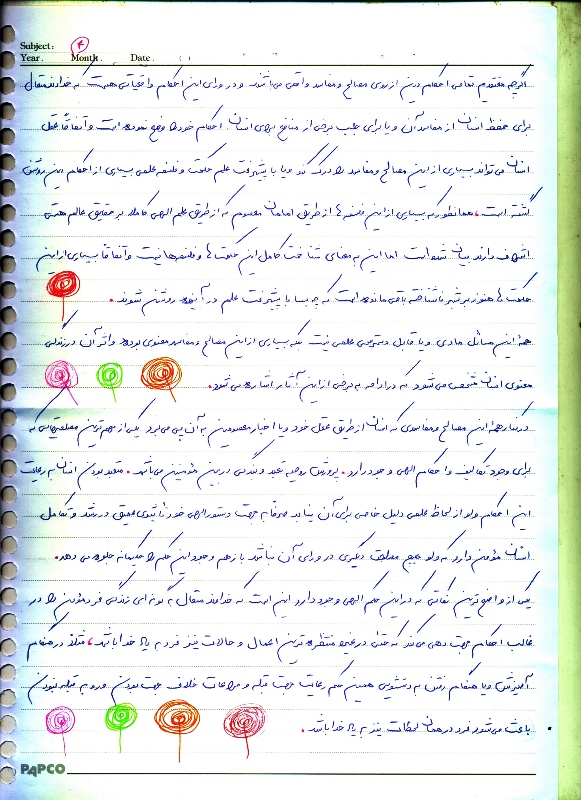 Subject: ۴
Year. Month. Date. ( )
اگرچه معتقدیم تمامی احکام دین از روی مصالح و مفاسد واقعی می‌باشند و در ورای این احکام واقعیاتی هست که خداوند متعال
برای حفظ انسان از مفاسد آن و یا برای جلب برخی از منافع برای انسان، احکام خود را وضع نموده است و اتفاقاً عقل
انسان می‌تواند بسیاری از این مصالح و مفاسد را درک کند و یا با پیشرفت علم حکمت و فلسفه علمی بسیاری از احکام دین روشن
گشته است، همانطور که بسیاری از این فلسفه‌ها از طریق امامان معصوم که از طریق علم الهی کاملاً بر حقایق عالم هستی
اشراف دارند بیان شده است اما این به معنای شناخت کامل این حکمت‌ها و فلسفه‌ها نیست و اتفاقاً بسیاری از این
حکمت‌ها هنوز بر بشر ناشناخته باقی مانده است که چه بسا با پیشرفت علم در آینده روشن شوند.
همهٔ این مسائل مادی و یا قابل دسترسی علمی نیست بلکه بسیاری از این مصالح و مفاسد معنوی بوده و اثر آن در زندگی
معنوی انسان مشخص می‌شود که در ادامه به برخی از این آثار اشاره می‌شود.
در کنار همهٔ این مصالح و مفاسدی که انسان از طریق عقل خود و یا اخبار معصومین به آن پی می‌برد یکی از مهم‌ترین مصلحت‌هایی که
برای وجود تکالیف و احکام الهی وجود دارد، پرورش روحیه تعبد و بندگی در بین مؤمنین می‌باشد. متعبد بودن انسان به رعایت
این احکام ولو از لحاظ علمی دلیل خاصی برای آن نیابد صرفاً به جهت دستور الهی خود تأثیری عمیق در رشد و تکامل
انسان مؤمن دارد که ولو هیچ مصلحت دیگری در ورای آن نباشد باز هم وجود این حکم را حکیمانه جلوه می‌دهد.
یکی از واضح‌ترین نکاتی که در این حکم الهی وجود دارد این است که خداوند متعال به گونه‌ای زندگی فرد مؤمن را در
غالب احکام جهت دهی می‌کند که حتی در غیر منتظره‌ترین اعمال و حالات نیز فرد به یاد خدا باشد، مثلاً در هنگام
آمیزش و یا هنگام رفتن به دستشویی همین حکم رعایت جهت قبله و مراعات خلاف جهت بودن و رو به قبله نبودن
باعث می‌شود فرد در همان لحظات نیز به یاد خدا باشد.
PAPCO